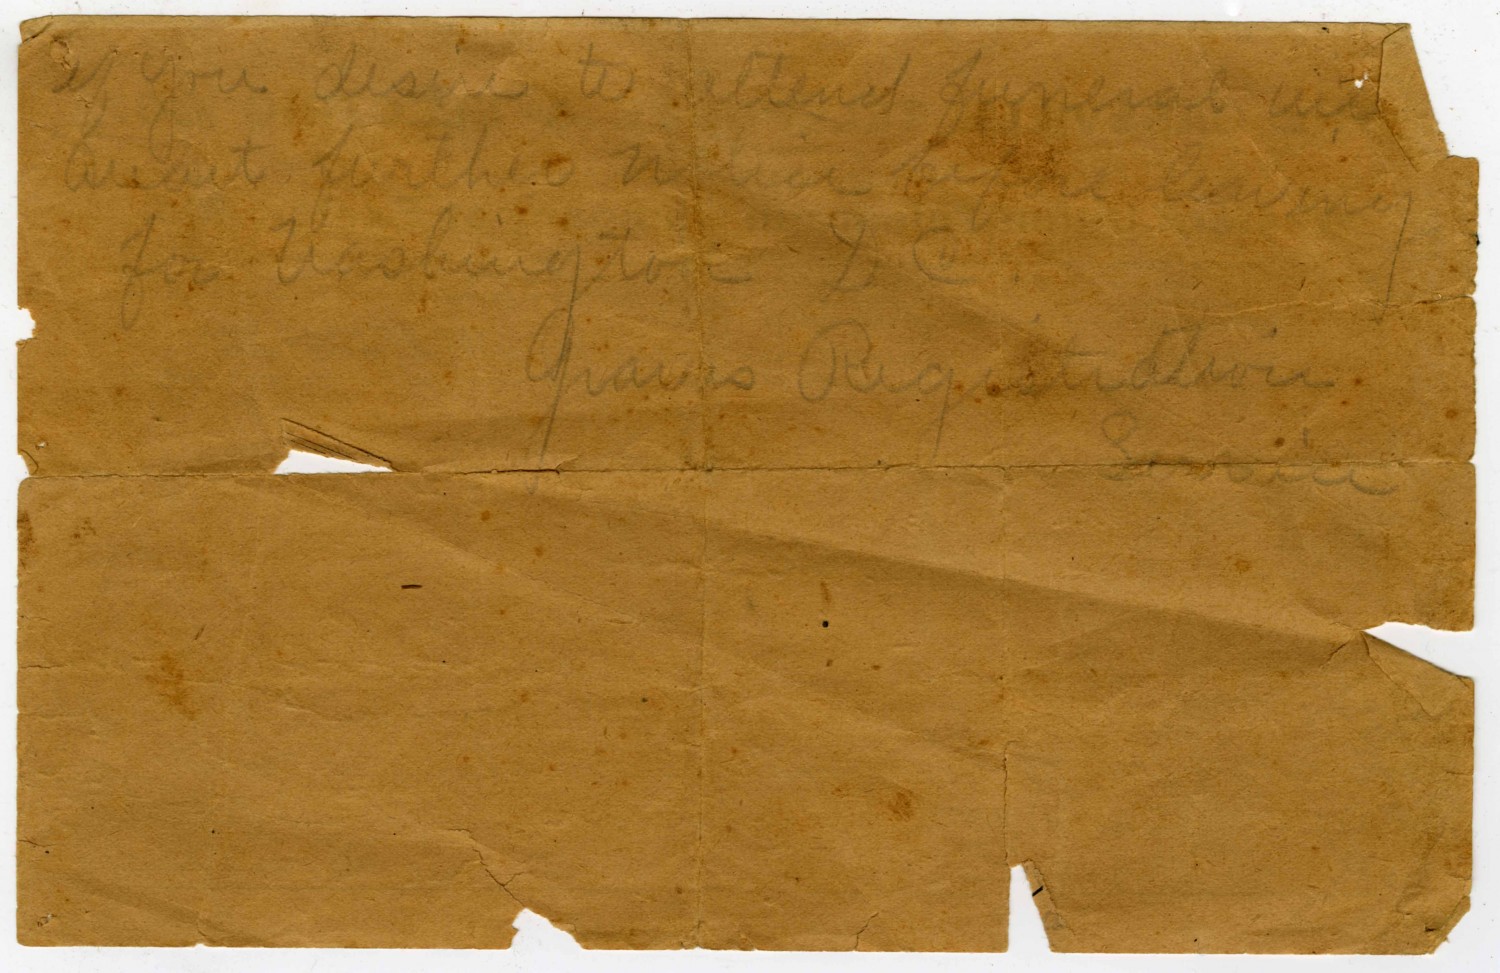 if you desire to attend funeral
await further notice before leaving
for Washington D C.
Graves Registration
Service